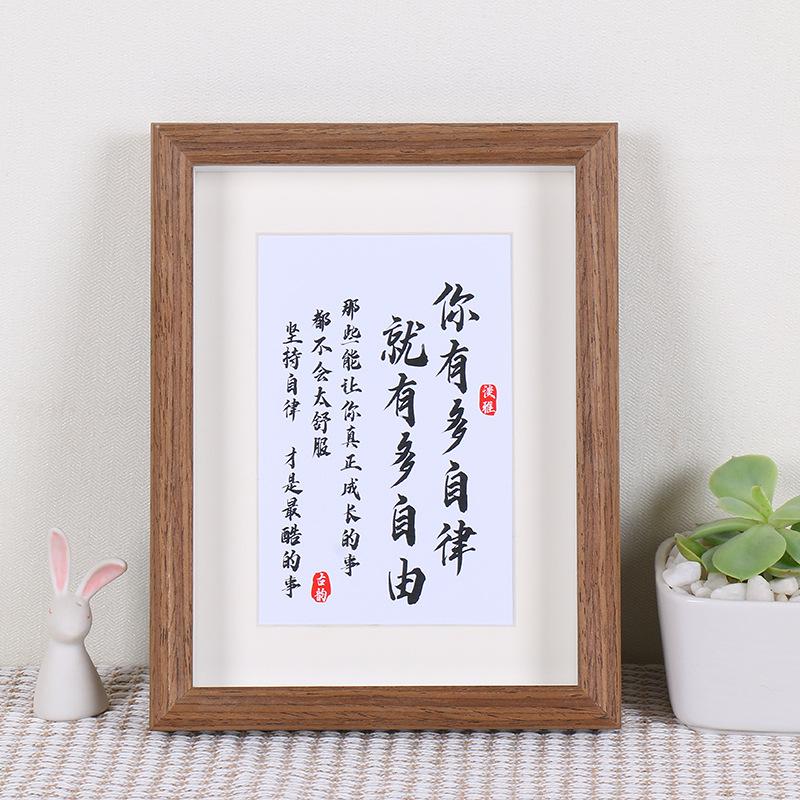 你有多自律
就有多自由
那些能让你真正成长的事
都不会太舒服
坚持自律 才是最酷的事
淡雅
古韵